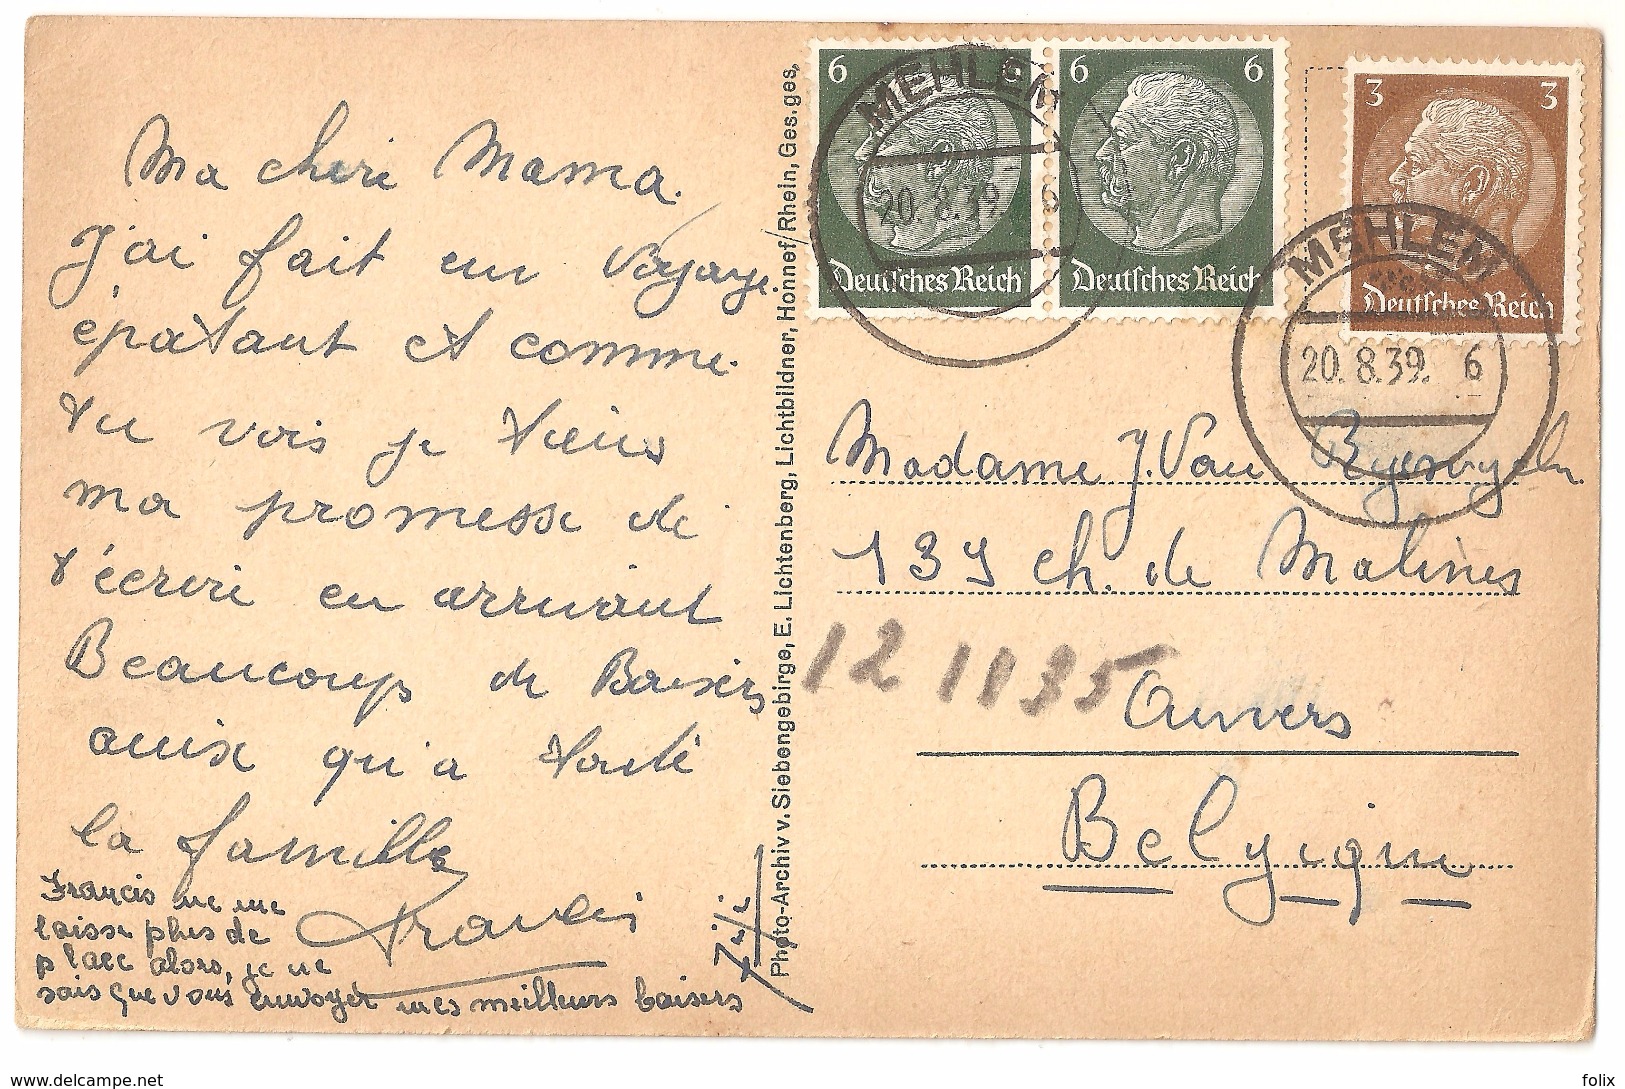 Ma cheri Mama.
J'ai fait un Voyage
épatant et comme
tu vois je tiens
ma promesse de
t'écrire en arrivant
Beaucoup de Baisers
ausi qu'a toute
la famille
Francis
Francis ne me
laisse plus de
place alors, je ne
sais que vous envoyer mes meilleurs baisers
Zizi
Photo-Archiv v. Siebengebirge, E. Lichtenberg, Lichtbildner, Honnef/Rhein, Ges. ges.
6 6
Deutsches Reich
6 6
Deutsches Reich
3 3
Deutsches Reich
MEHLEM
20.8.39. 6
MEHLEM
20.8.39. 6
Madame J. Van
139 ch. de Malines
12 1935
Anvers
Belgique
www.delcampe.net
folix